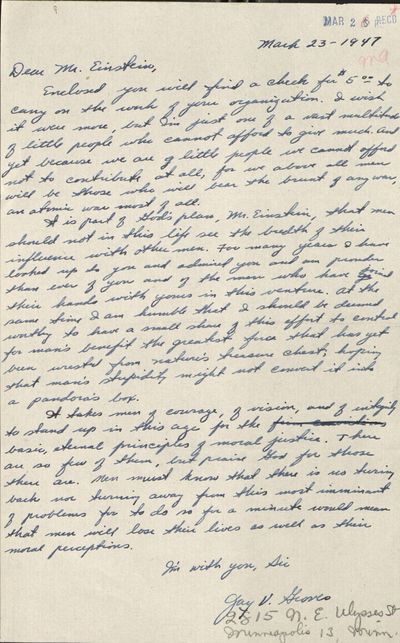 MAR 26 RECD
March 23-1947
Dear Mr. Einstein,
Enclosed you will find a check for $5.00 to
carry on the work of your organization. I wish
it were more, but I'm just one of a vast multitude
of little people who cannot afford to give much. And
yet because we are of little people we cannot afford
not to contribute at all, for we above all men
will be those who will bear the brunt of any war,
an atomic war most of all.
It is part of God's plans, Mr. Einstein, that men
should not in this life see the bredth of their
influence with other men. For many years I have
looked up to you and admired you and am prouder
than ever of you and of the men who have joined
their hands with yours in this venture. At the
same time I am humble that I should be deemed
worthy to have a small share of this effort to control
for man's benefit the greatest force that has yet
been wrested from nature's treasure chest, hoping
that man's stupidity might not convert it into
a pandora's box.
It takes men of courage, of vision, and of integrity
to stand up in this age for the
basic, eternal principles of moral justice. There
are so few of them, but praise God for those
there are. Men must know that there is no turning
back nor turning away from this most imminant
of problems for to do so for a minute would mean
that men will lose their lives as well as their
moral perceptions.
I'm with you, Sir
Gay V. Groves
2815 N. E. Ulysses St
Minneapolis 13 Minn.